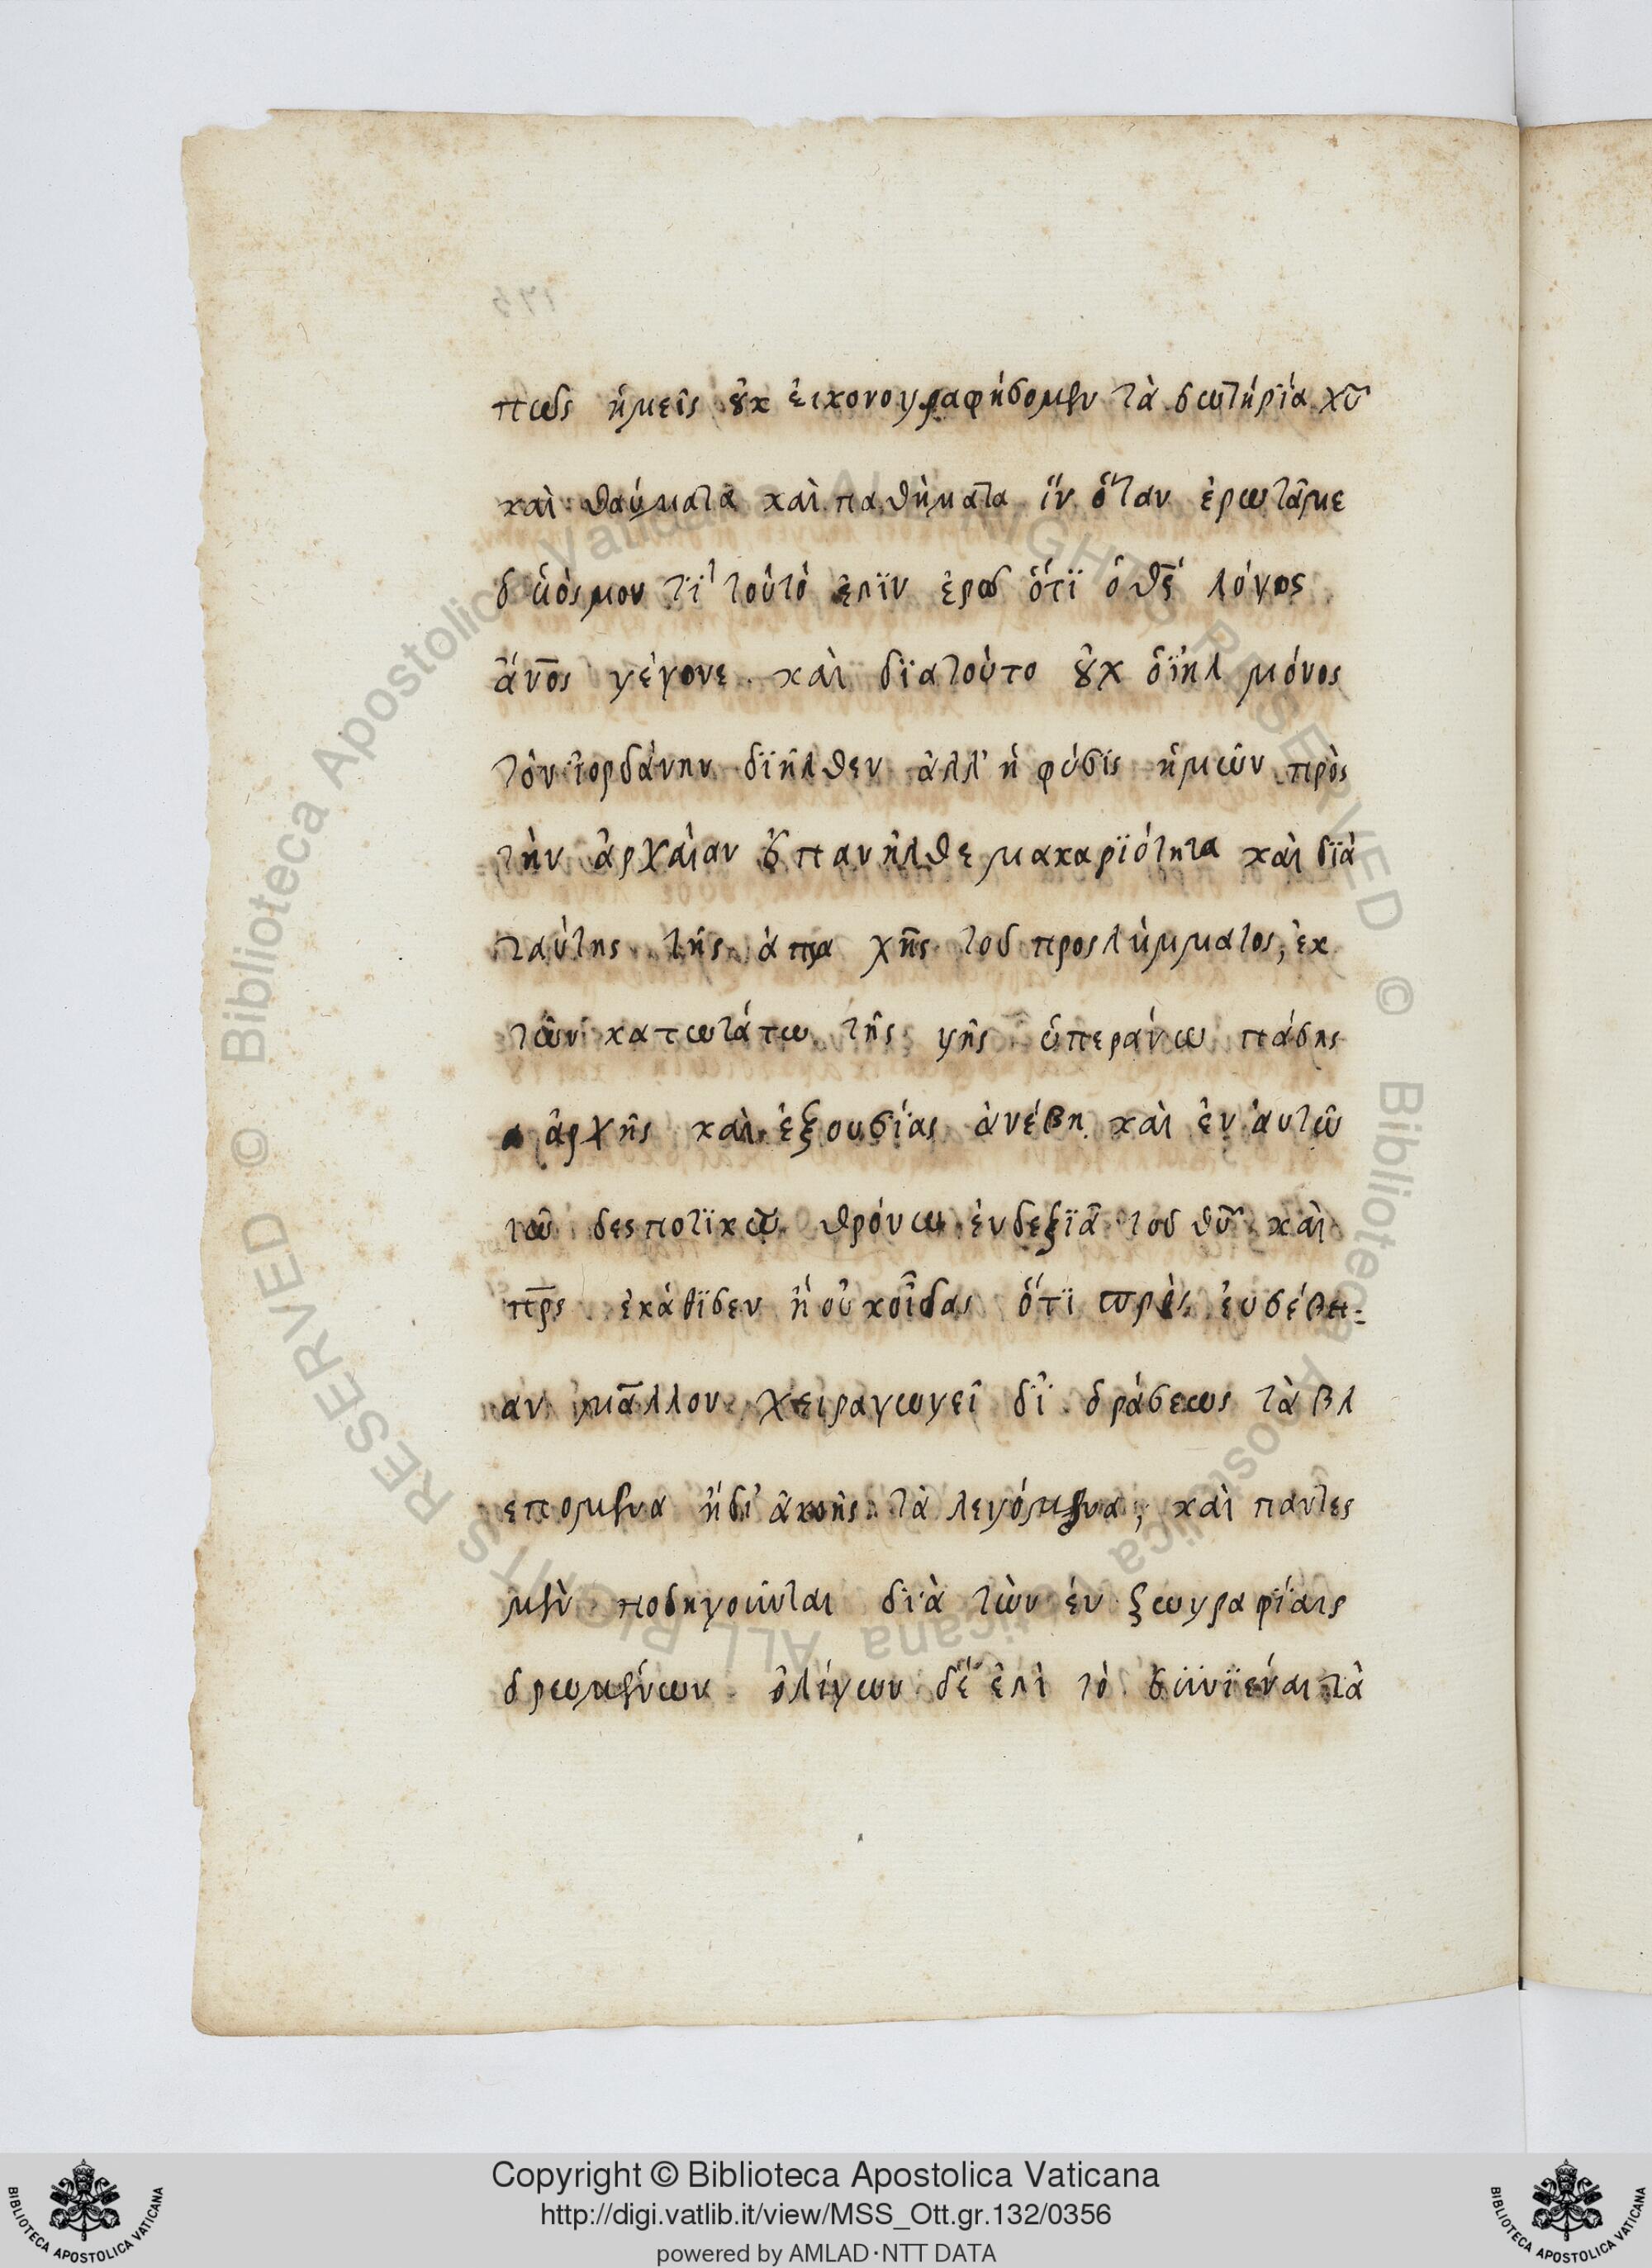 πῶς ἡμεῖς οὐκ εἰκονογραφήσομεν τὰ σωτήρϊα χῦ
καὶ θαύματα καὶ παθήματα ἵν ὅταν ἐρωτᾶ με
ὁ ὑὸς μου τΐ τοῦτό ἐστϊν ἐρῶ ὅτϊ ὁ θς λόγος
ἄνος γέγονε καὶ δϊατοῦτο οὐχ ὁ ϊηλ μόνος
τὸν ϊορδάνην δϊῆλθεν ἀλλ' ἡ φύσϊς ἡμῶν πρὸς
τὴν ἀρχαίαν ἐπανῆλθε μακαρϊότητα καὶ δϊὰ
ταύτης τῆς ἀπα χῆς τοῦ προσλήμματος, ἐκ
τῶν κατωτάτω τῆς γῆς ὑπεράνω πάσης
ἀρχῆς καὶ ἐξουσίας ἀνέβη καὶ ἐν αὐτῶ
τῶ δεσποτϊκῶ θρόνω ἐνδεξϊᾶ τοῦ θῦ καὶ
πρς ἐκάθϊσεν ἢ οὐκοῖδας ὅτϊ πρὸς ἐυσέβη-
αν μᾶλλον χειραγωγεῖ δϊ ὁράσεως τὰ βλ
επομενα ἢδι' ἀκοῆς τὰ λεγόμενα; καὶ παντες
μὲν ποδηγοῦνται δϊὰ τῶν ἐν ζωγραφΐαις
ὁρωμένων ὀλίγων δέ ἐστὶ τὸ συνϊέναι τὰ
Copyright © Biblioteca Apostolica Vaticana
http://digi.vatlib.it/view/MSS_Ott.gr.132/0356
powered by AMLAD·NTT DATA